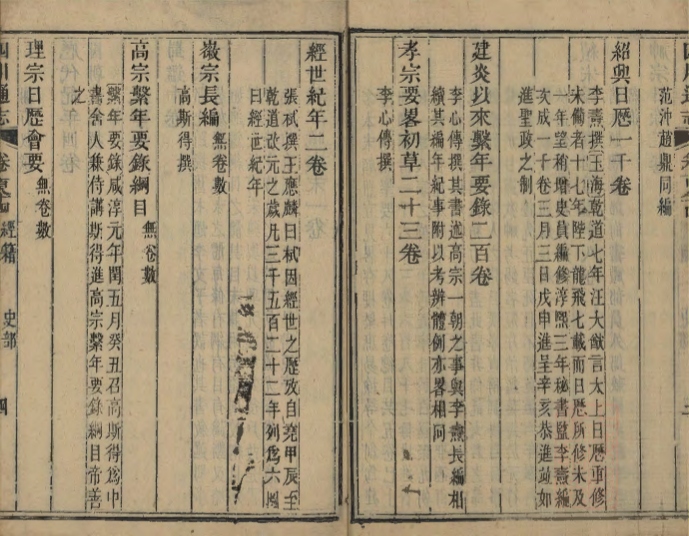 范沖趙鼎同編
紹興日歷一千卷
李燾撰玉海乾道七年汪大猷言太上日歷重修
未備者十七年陛下龍飛七載而日歷所修未及
一年望稍增史員編修淳熙三年秘書監李燾編
次成一千卷三月三日戊申進呈辛亥恭進並如
進聖政之制
建炎以來繫年要錄二百卷
李心傳撰其書述高宗一朝之事與李燾長編相
續其編年紀事附以考辨體例亦畧相同
孝宗要畧初草二十三卷
李心傳撰
經世紀年二卷
張栻撰王應麟曰栻因經世之歷攷自堯甲辰至
乾道改元之歲凡三千五百二十二年列為六圖
曰經世紀年
徽宗長編 無卷數
高斯得撰
高宗繫年要錄綱目 無卷數
繫年要錄咸淳元年閏五月癸丑召高斯得為中
書舍人兼侍講斯得進高宗繫年要錄綱目帝善
之
理宗日歷會要 無卷數
四川通志 經籍 史部 四